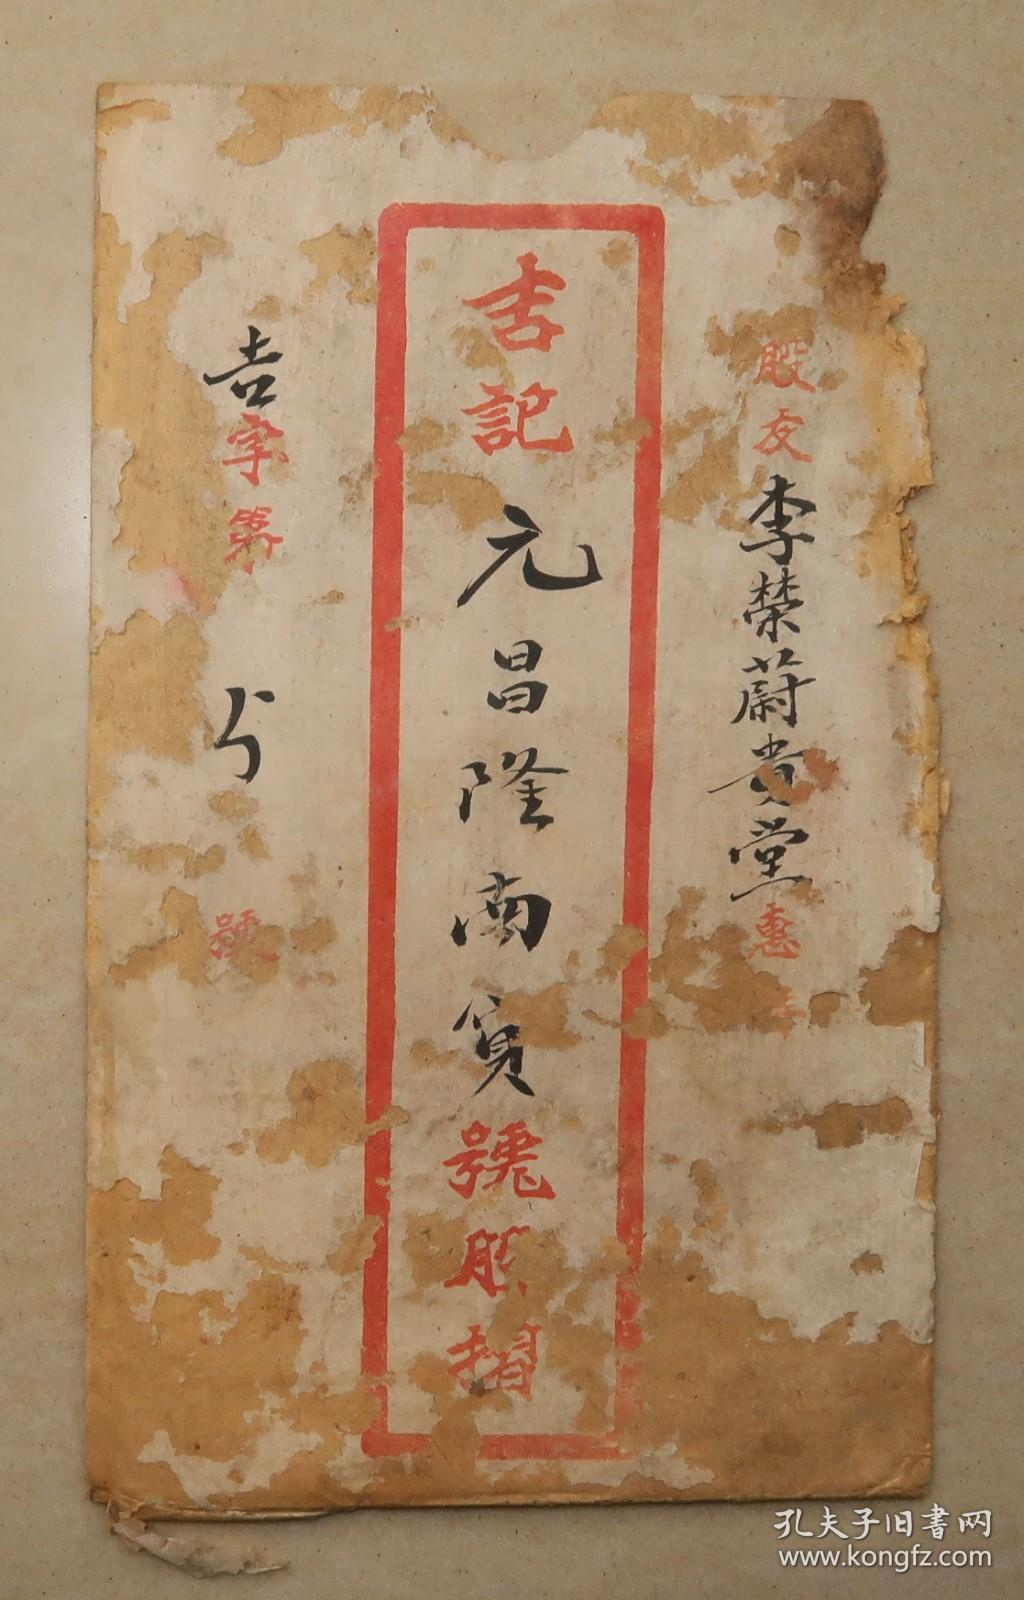 股友李榮蔚貴堂惠存
吉記元昌隆南寳號股摺
吉字第 號
孔夫子旧書网
www.kongfz.com